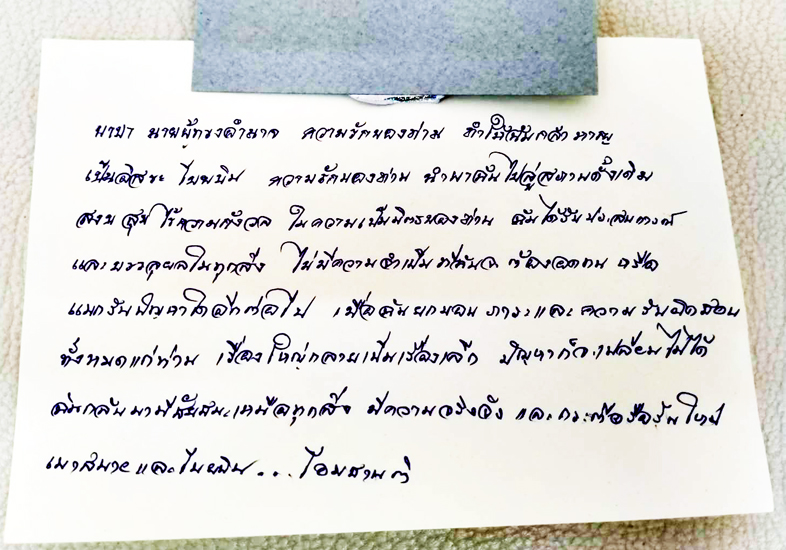 บาบา นายผู้ทรงอำนาจ ความรักของท่าน ทำให้ฉันกล้าหาญ
เป็นอิสระ โบยบิน ความรักของท่าน นำพาฉันไปสู่สถานดั้งเดิม
สงบ สุข ไร้ความกังวล ในความเป็นมิตรของท่าน ฉันได้รับประสบการณ์
และบรรลุผลในทุกสิ่ง ไม่มีความจำเป็นที่ฉันจะต้องอดทน หรือ
แบกรับปัญหาใดอีกต่อไป เมื่อฉันยกมอบภาระและความรับผิดชอบ
ทั้งหมดแก่ท่าน เรื่องใหญ่กลายเป็นเรื่องเล็ก ปัญหาก็จะเปลี่ยนไม่ได้
ฉันกลับมามีชัยชนะเหนือทุกสิ่ง มีความจริงจัง และกระตือรือร้น ใหม่
เบาสบายและโบยบิน... โอมชานติ